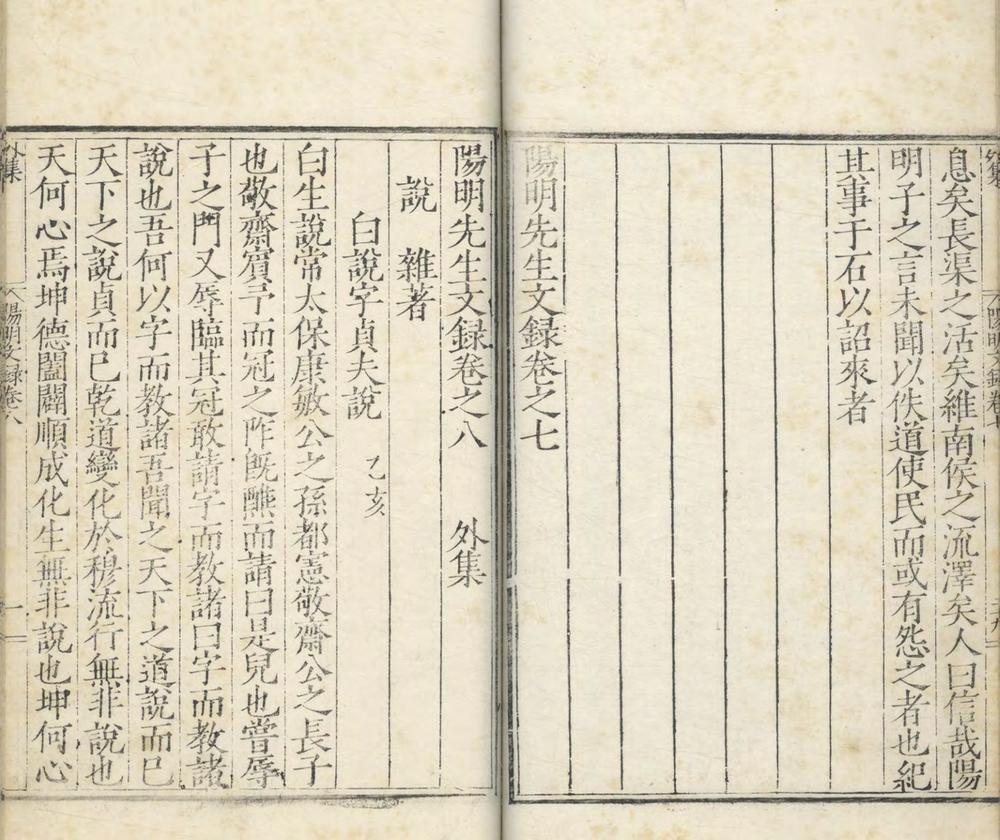 息矣長渠之活矣維南侯之流澤矣人曰信哉陽
明子之言未聞以佚道使民而或有怨之者也紀
其事于石以詔來者
陽明先生文録卷之七
陽明先生文録卷之八　　外集
說　雜著
白說字貞夫說　乙亥
白生說常太保康敏公之孫都憲敬齋公之長子
也敬齋賓予而冠之阼旣醮而請曰是兒也嘗辱
子之門又辱臨其冠敢請字而教諸曰字而教諸
說也吾何以字而教諸吾聞之天下之道說而已
天下之說貞而已乾道變化於穆流行無非說也
天何心焉坤德闔闢順成化生無非說也坤何心
外集　陽明文録卷八　一